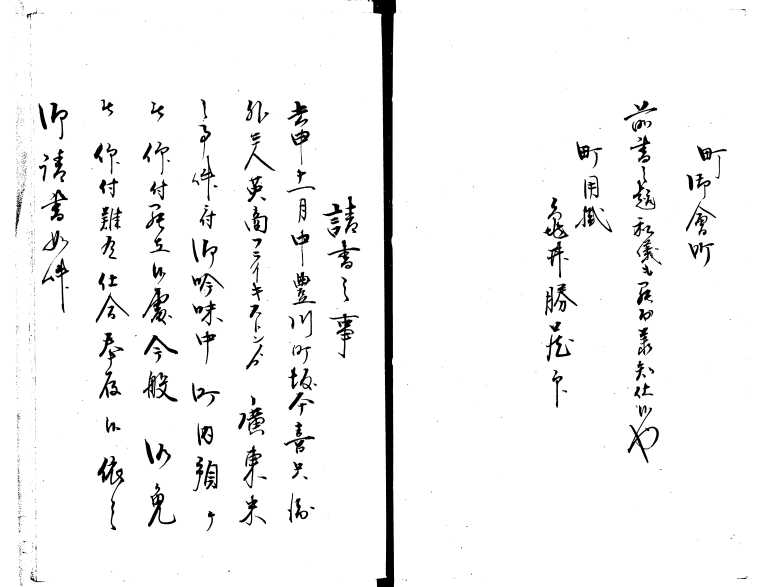 町御會所
前書之趣私儀も罷出承知仕候也
町用掛
亀井勝蔵印
請書之事
去申十一月中豊川町坂今喜兵衛
外三人英商フライキストンゟ廣東米
之事件ニ付御吟味中町内預ケ
被仰付罷在候處今般御免
被仰付難有仕合奉存候依之
御請書如件